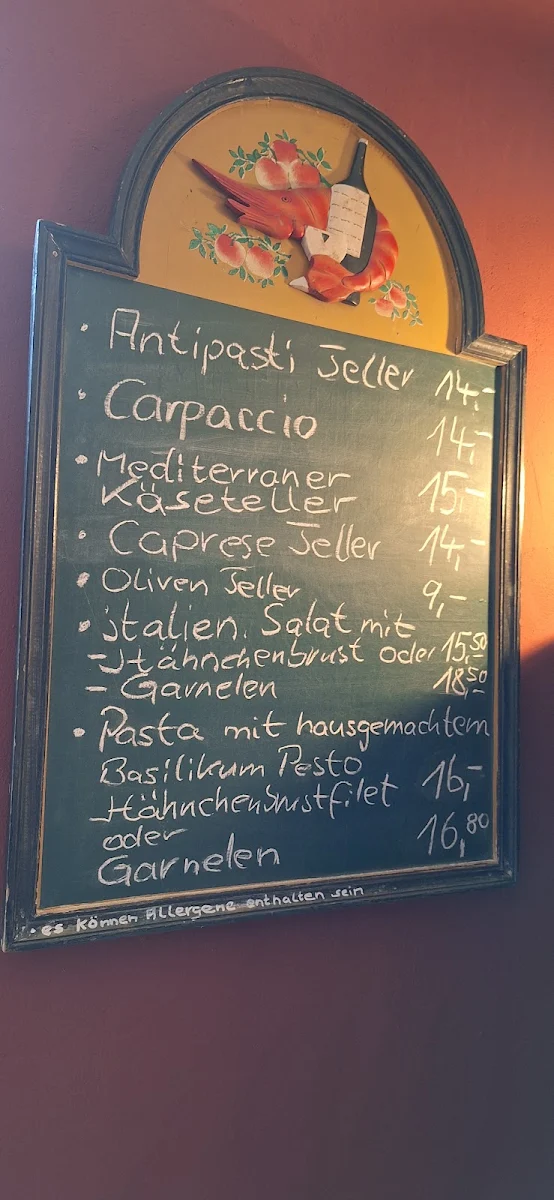 • Antipasti Teller 14,-
• Carpaccio 14,-
• Mediterraner
Käseteller 15,-
• Caprese Teller 14,-
• Oliven Teller 9,-
• italien. Salat mit
- Hähnchenbrust oder 15,50
- Garnelen 18,50
• Pasta mit hausgemachtem
Basilikum Pesto
Hähnchenbrustfilet 16,-
oder
Garnelen 16,80
• es können Allergene enthalten sein